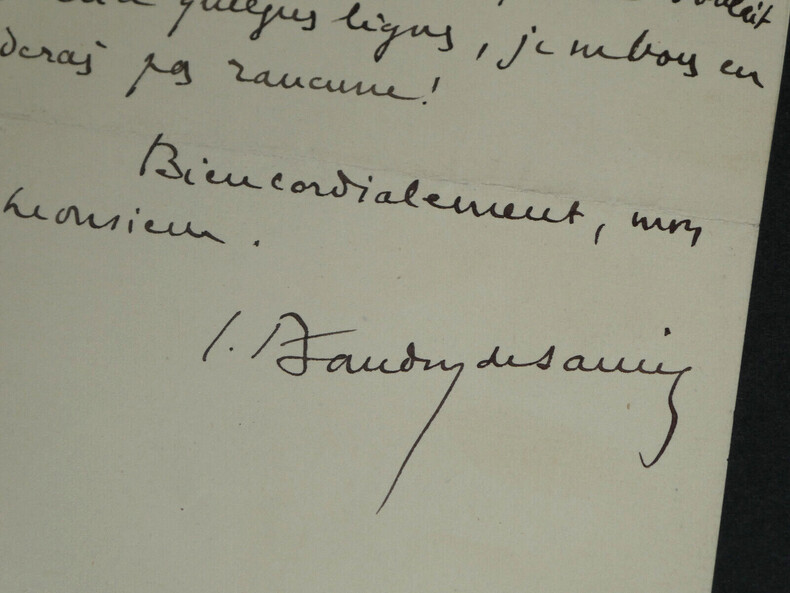 quelques lignes, je ne vous en
derais pas rancune!
Bien cordialement, mon
Monsieur.
L. Baudry de Saunier